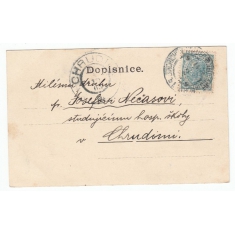 CHRU
Dopisnice.
Milému druhu
p. Josefovi Nečasovi
studujícímu hosp. školy
v
Chrudimi